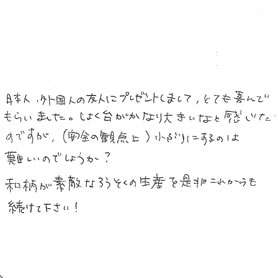 日本人、外国人の友人にプレゼントしまして、とても喜んで
もらいました。しょく台がかなり大きいなと感じた
のですが、(安全の観点上)小ぶりにするのは
難しいのでしょうか?
和柄が素敵なろうそくの生産を是非これからも
続けて下さい!